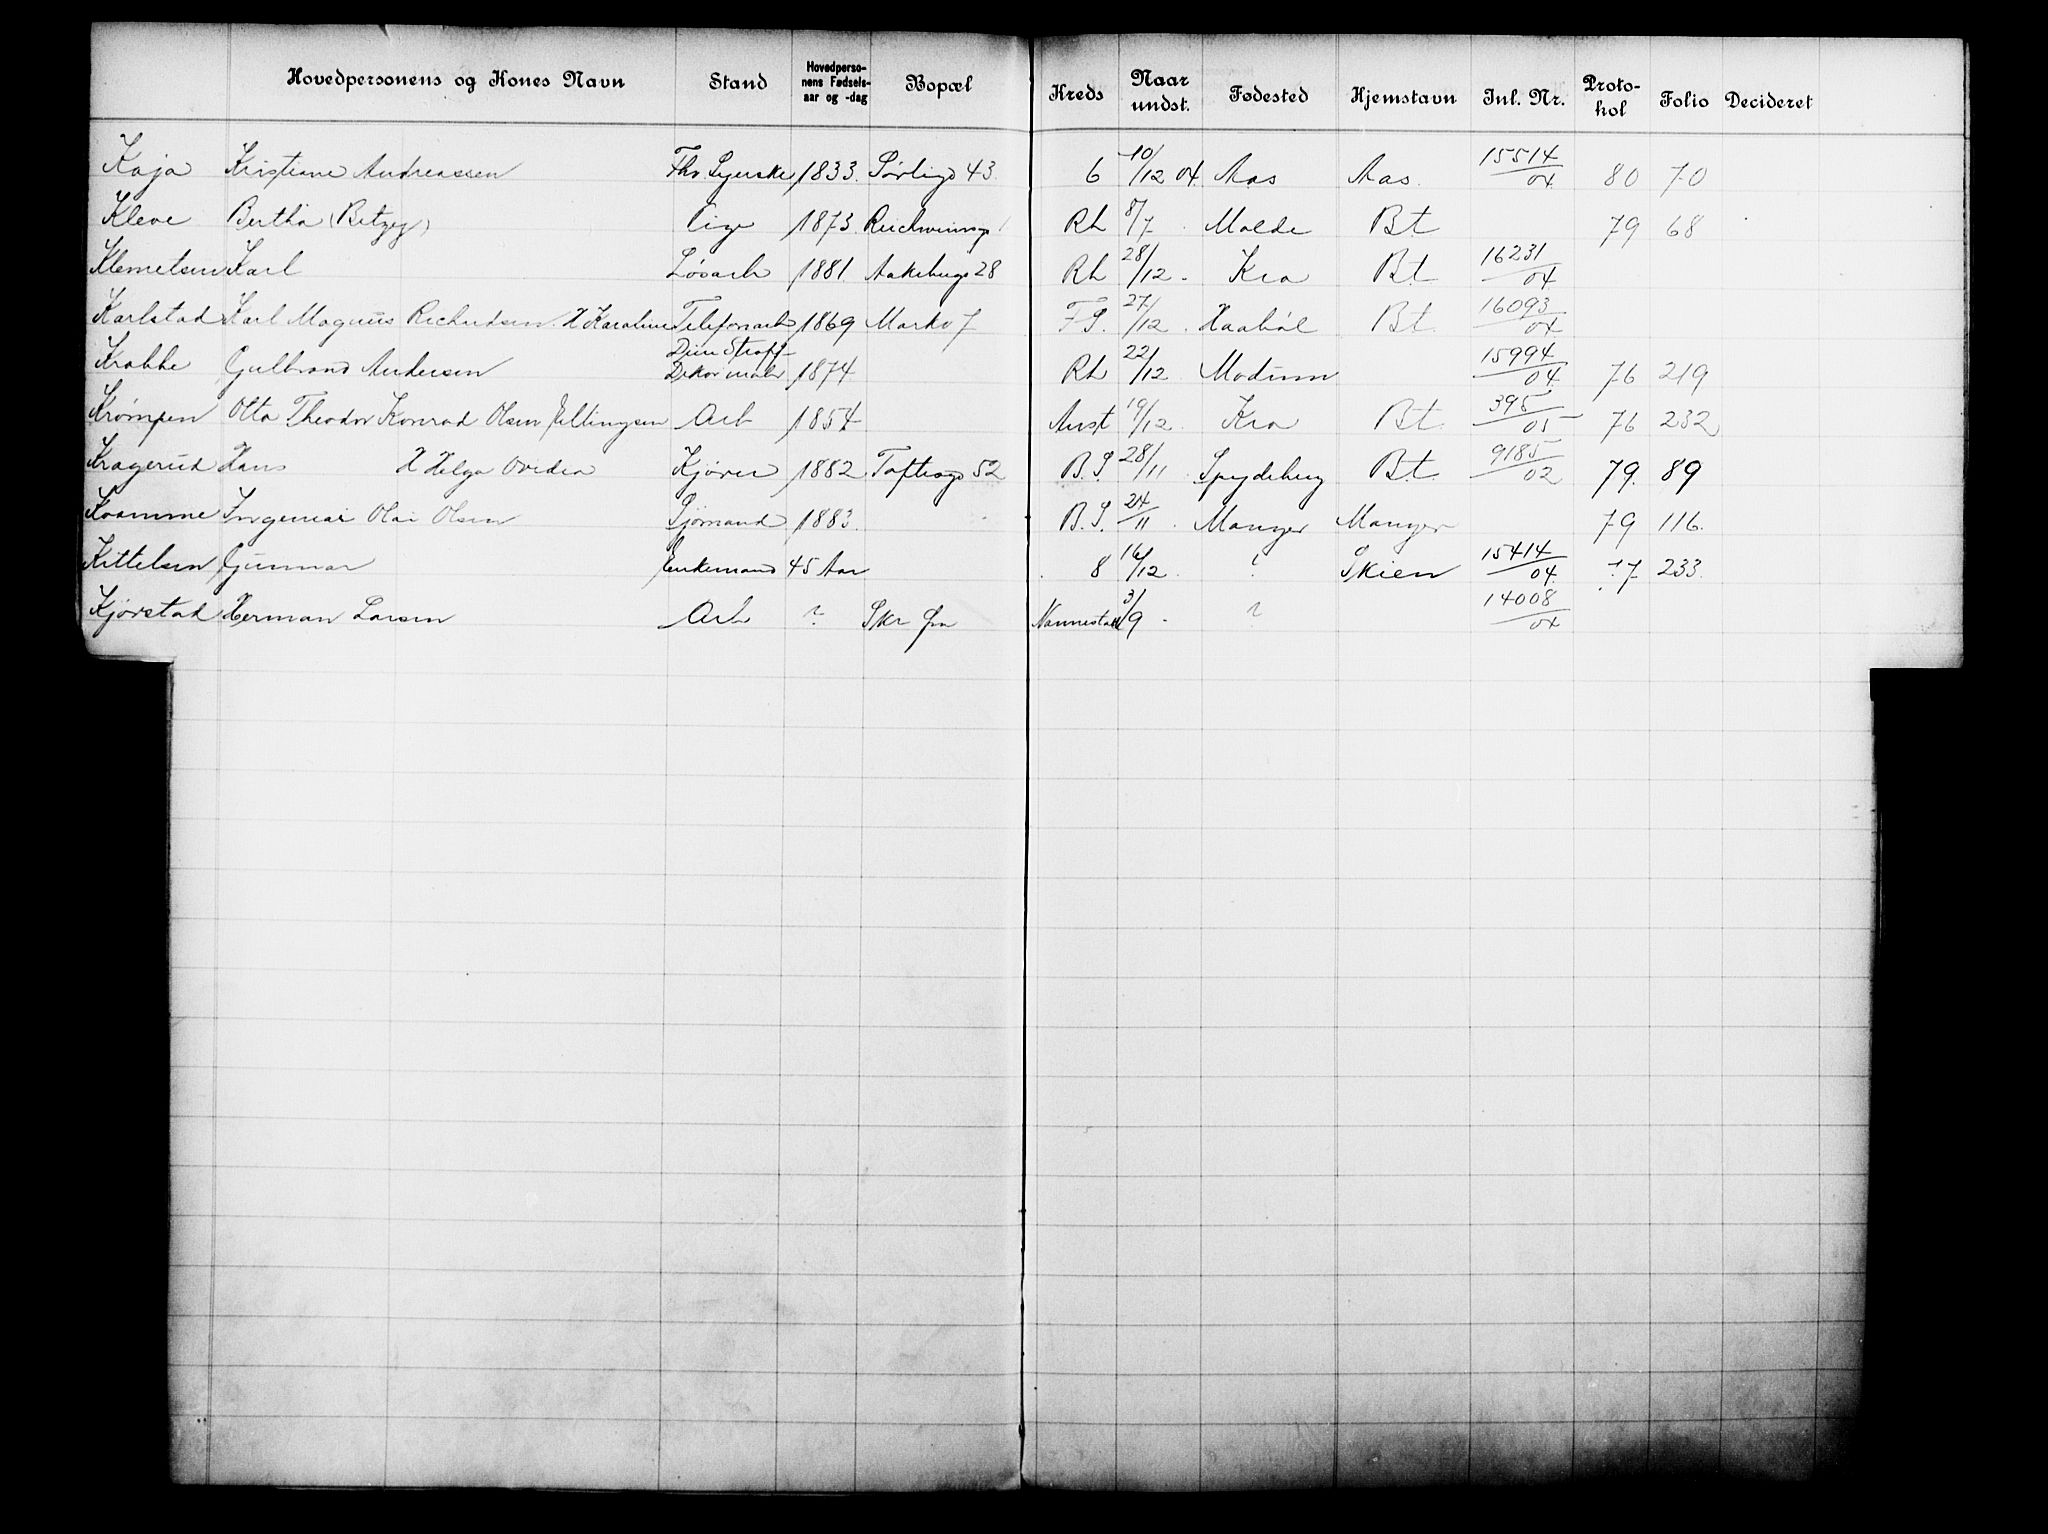 Hovedpersonens og Kones Navn Stand Hovedperso-nens Fødsels-aar og -dag Bopæl Kreds Naar undst. Fødested Hjemstavn Inl. Nr. Proto-kol Folio Decideret
Kaja Kristiane Andreassen Fhv. Syerske 1833. Sørligd 43. 6 10/12 04. Aas Aas. 15514/04 80 70
Kleve Bertha (Betzey) Pige 1873. Rh 8/7 Molde Bt 79 68
Klemetsen Karl Løsarb 1881. Aakebergv 28 Rh 28/12 - Kra Bt 16231/04
Karlstad Karl Magnus Richardsen X Karoline Telefonarb 1869 Markv 7 F S. 27/12 . Haabøl Bt. 16093/04
Krabbe Gulbrand Andersen Dekor maler 1874 Rh 22/12 Modum 15994/04 76 219
Krømpen Otto Theodor Konrad Olsen Ellingsen Arb 1854 Anst 19/12 Kra Bt. 395/05 76 232
Kragerud Hans X Helga Ovidia Kjører 1882 Toftesgd 52 B. S. 28/11 Spydeberg Bt. 9185/02 79. 89
Kvamme Ingemar Olai Olsen Sjømand 1883. B. S. 24/11 . Manger Manger 79 116.
Kittelsen Gunnar Enkemand 45 Aar 8 16/12 ? Skien 15414/04. 77 233.
Kjørstad Herman Larsen Arb ? Skr fra Nannestad 3/9 - ? 14008/04